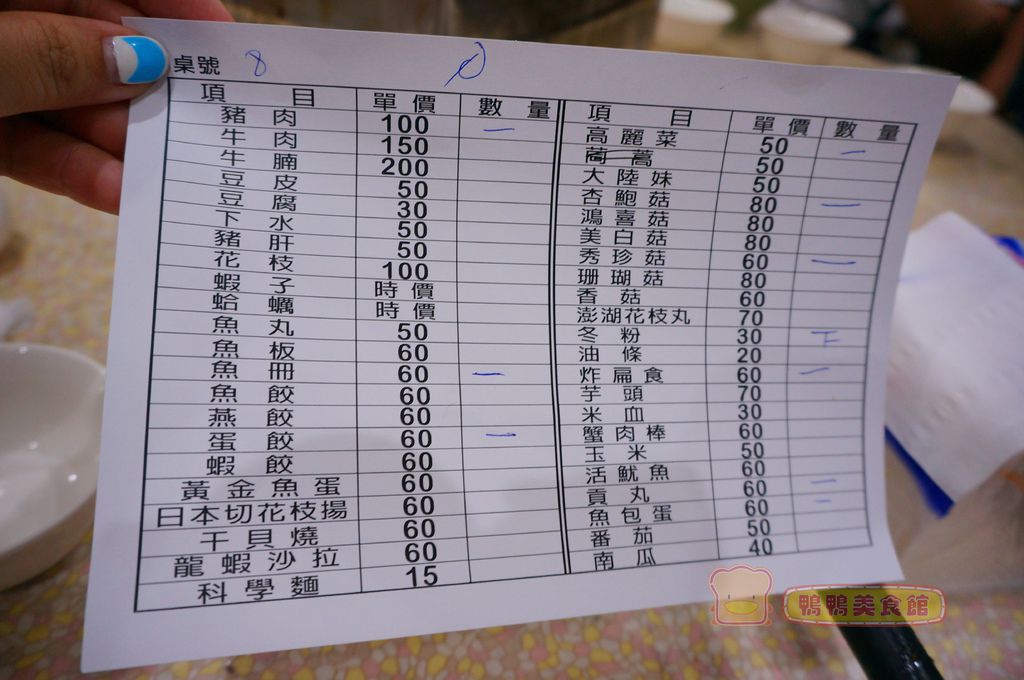 桌號 8
項目 單價 數量
豬肉 100 一
牛肉 150
牛腩 200
豆皮 50
豆腐 30
下水 50
豬肝 50
花枝 100
蝦子 時價
蛤蠣 時價
魚丸 50
魚板 60
魚冊 60 一
魚餃 60
燕餃 60
蛋餃 60 一
蝦餃 60
黃金魚蛋 60
日本切花枝揚 60
干貝燒 60
龍蝦沙拉 60
科學麵 15
項目 單價 數量
高麗菜 50 一
茼蒿 50
大陸妹 50
杏鮑菇 80 一
鴻喜菇 80
美白菇 80
秀珍菇 60 一
珊瑚菇 80
香菇 60
澎湖花枝丸 70
冬粉 30 下
油條 20
炸扁食 60 一
芋頭 70
米血 30
蟹肉棒 60
玉米 50
活魷魚 60
貢丸 60 一
魚包蛋 60 一
番茄 50
南瓜 40
鴨鴨美食館